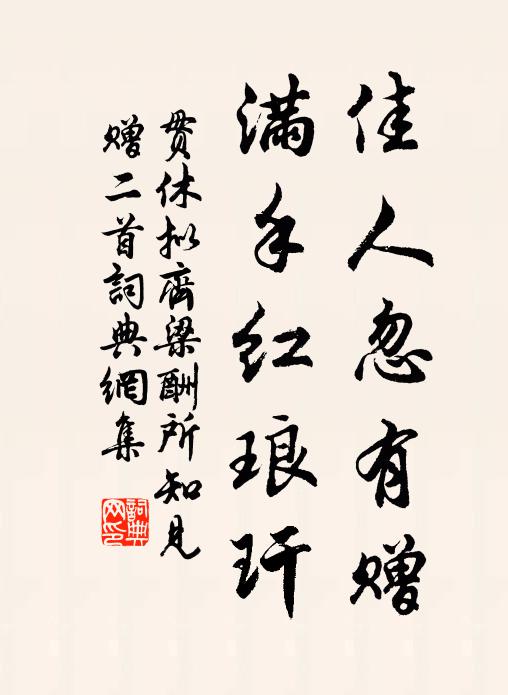 佳人忽有赠
满手红琅玕
贯休拟齊梁酬所知见
赠二首詞典網集
詞典
网印